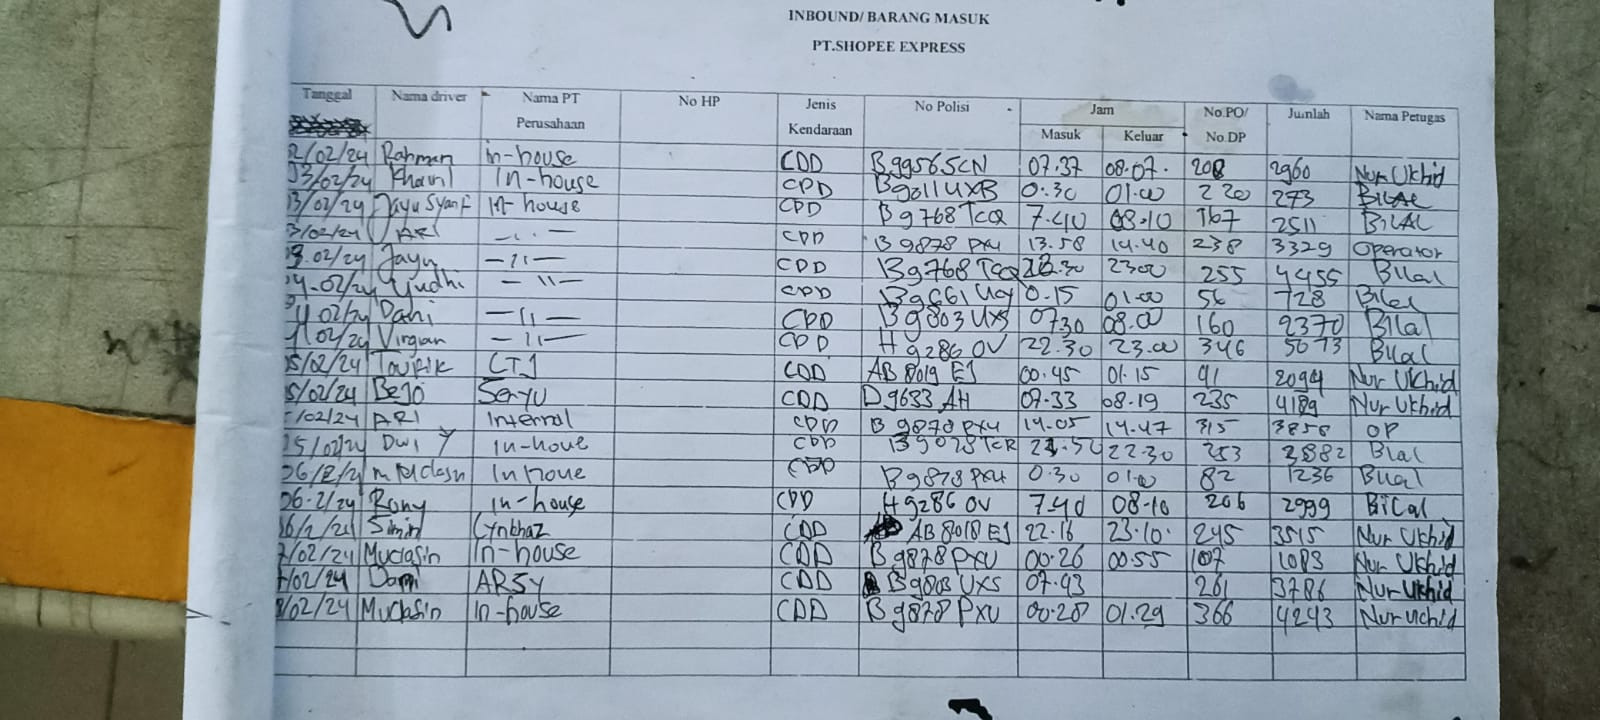 INBOUND/ BARANG MASUK
PT.SHOPEE EXPRESS
Tanggal Nama driver Nama PT Perusahaan No HP Jenis Kendaraan No Polisi Jam Masuk Keluar No.PO/ No.DP Jumlah Nama Petugas
2/02/24 Rahman in-house CDD B 9956 SCN 07.37 08.07. 208 2960 Nur Ukhid
03/02/24 Khairil In-house CDD B 9011 UXB 0.30 01.00 220 273 BILAL
3/02/24 Jayu Syarif In-house CDD B 9768 TCQ 7.40 08.10 167 2511 BILAL
3/02/24 ARI -〃- CDD B 9878 PXU 13.58 14.40 238 3329 Operator
3.02/24 Jayu -〃- CDD B 9768 TCQ 23.00 255 4455 Bilal
04-02/24 Yudhi -〃- CDD B 9661 0.15 01.00 728 Bilal
4 02/24 Dani -〃- CDD B 9803 UXS 0730 08.00 160 2370 Bilal
4/02/24 Virgian -〃- CDD H 9286 OV 22.30 23.00 346 5073 Bilal
5/02/24 Taufik CTJ CDD AB 8019 EJ 00.45 01.15 91 2094 Nur Ukhid
5/02/24 Bejo Senyu CDD D 9633 AH 07.33 08.19 235 4189 Nur Ukhid
/02/24 ARI Internal CDD B 9878 PXU 14.05 14.47 315 3858 OP
05/02/24 Dwi Y In-houe CDD B 9028 TCR 22.30 253 3882 Bilal
06/2/24 In houe CDD B 9878 PXU 0.30 01.00 82 1236 Bilal
06-2/24 Rony In-house CDD H 9286 OV 7.40 08.10 206 2999 Bilal
06/2/24 Simin CDD AB 8018 EJ 22.16 23.10. 245 3515 Nur Ukhid
7/02/24 Muclasin In-house CDD B 9878 PXU 00.26 00.55 107 1083 Nur Ukhid
7/02/24 Dani ARSY CDD B 9803 UXS 07.43 261 3786 Nur Ukhid
8/02/24 Muclasin In-house CDD B 9878 PXU 00.28 01.29 366 4243 Nur Uchid